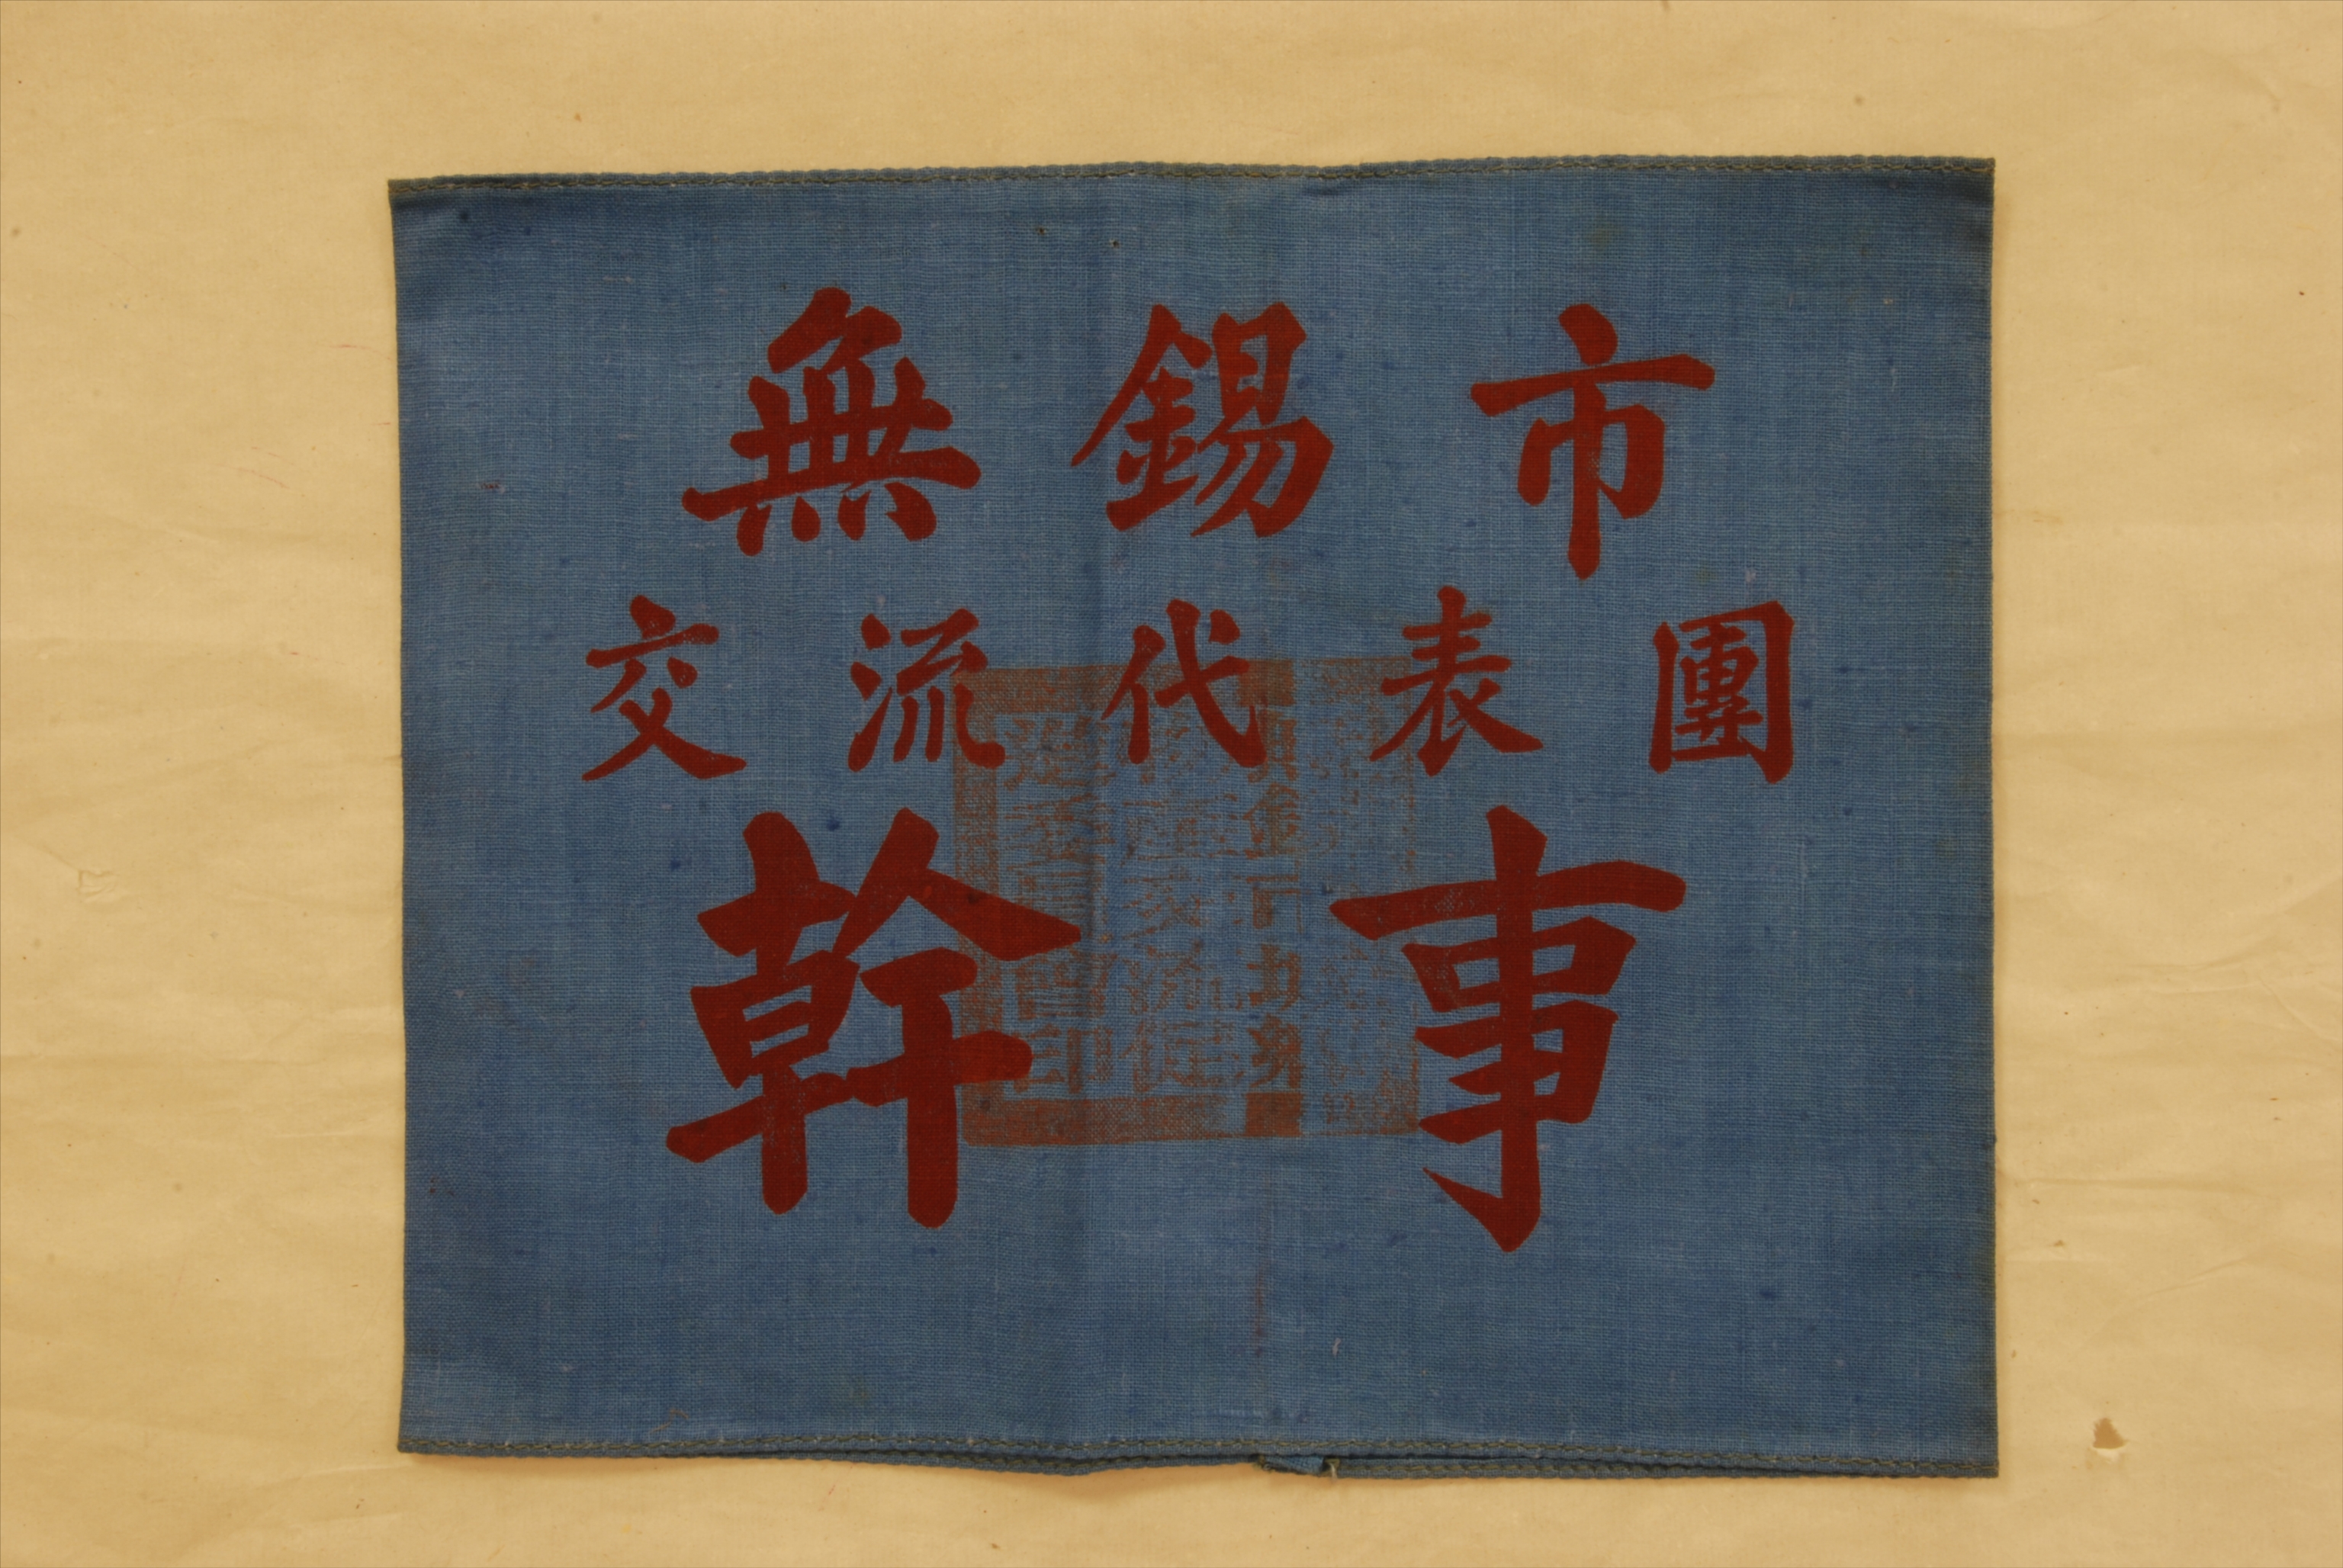 無錫市
交流代表團
幹事